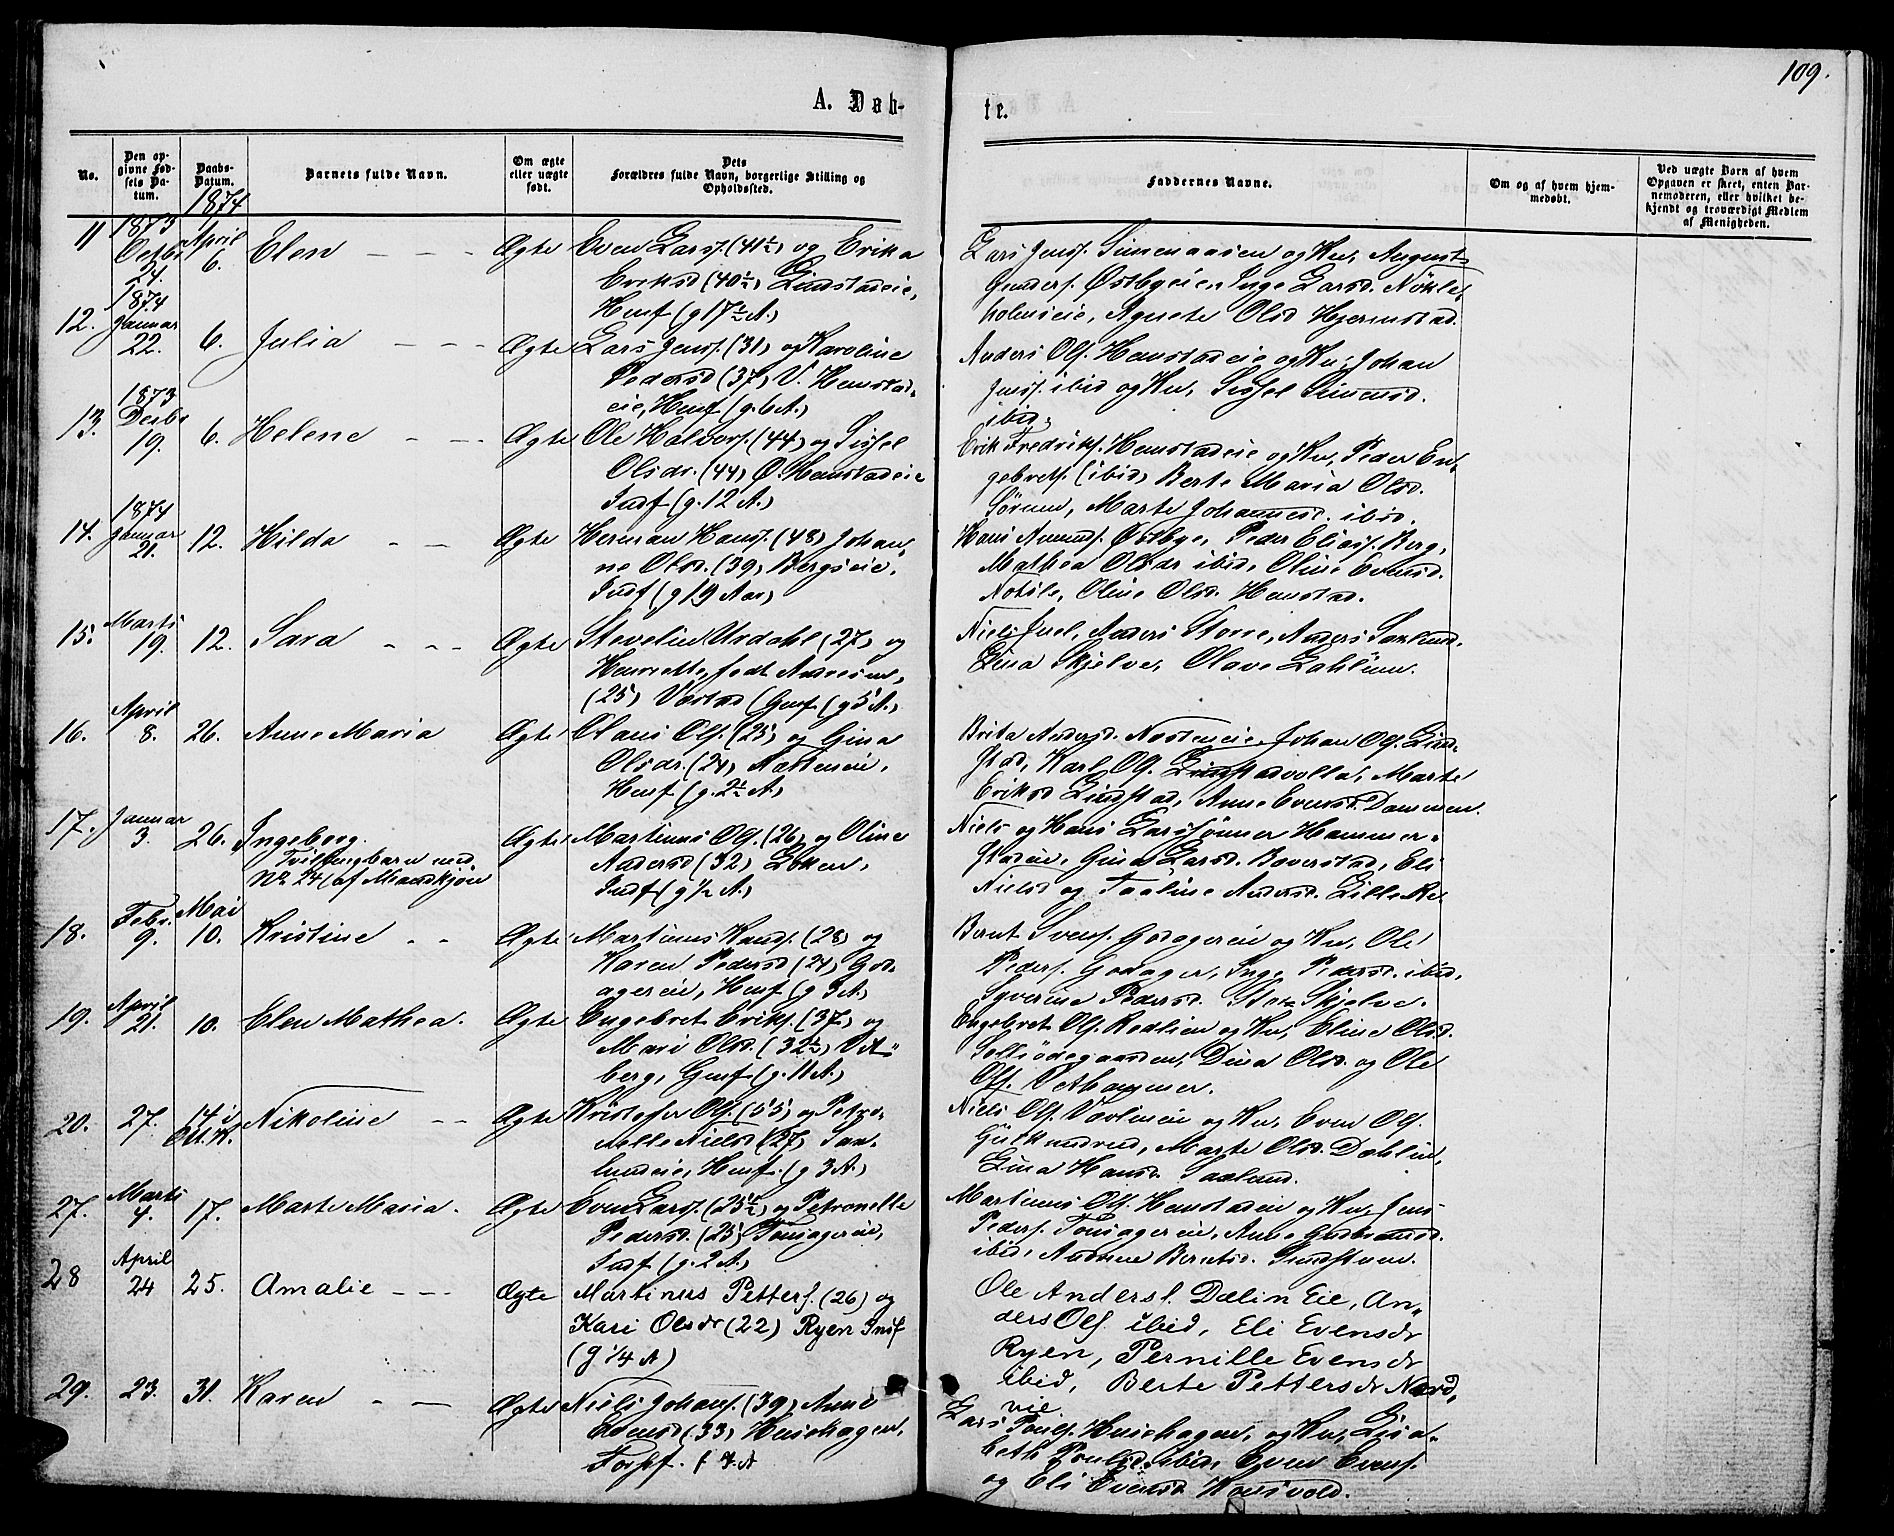 109.
A. Døb-
te.
No.
Den op-
givne Fød-
sels Da-
tum.
Daabs-
Datum.
1874
Barnets fulde Navn.
Om ægte
eller uægte
født.
Dets
Forældres fulde Navn, borgerlige Stilling og
Opholdssted.
Faddernes Navne.
Om og af hvem hjem-
medøbt.
Ved uægte Børn af hvem
Opgaven er skeet, enten Bar-
nemoderen, eller hvilket be-
kjendt og troværdigt Medlem
af Menigheden.
11
1873
Octbr
24.
April
6.
Elen
Ægte
Even Larss. (41½) og Erika
Eriksd (40½) Lindstadeie,
Husf (g 17½ A)
Lars Jenss. Simenaasen og Ku, August
Gunders. Østbyeie, Inge Larsd. Nökle,
holmseie, Agnete Olsd Hjermstad.
12.
1874
Januar
22.
6.
Julia
Ægte
Lars Jenss. (31) og Karoline
Pedersd (37) V. Hemstad-
eie, Husf (g. 6 A)
Anders Ols. Hemstadeie og Ku, Johan
Jenss. ibid og Ku, Sissel Simensd.
ibid.
13.
1873
Decbr
19.
6.
Helene
Ægte
Ole Halvors. (44) og Sissel
Olsdr. (44) Ø. Hemstadeie
Indf (g. 12 A)
Erik Fredriks. Hemstadeie og Ku, Peder En,
gebrets. (ibid) Berte Maria Olsd.
Sörum, Marte Johannesd. ibid.
14.
1874
Januar
21.
12.
Hilda
Ægte
Herman Hans. (48) Johan,
ne Olsd. (39) Bergseie,
Indf (g 19 Aar)
Hans Amunds. Østbye, Peder Elias. Berg,
Mathea Olsdr ibid, Oline Evensd.
Oline Olsd. Hemstad.
15.
Marts
19.
12.
Sara
Ægte
Stevelin Urdahl (27) og
Henrette, født Andresen,
(25) Væstad (Gmf (g 5 A)
Niels Juel, Anders Storre, Anders Saxlund.
Lina Skjelve, Olave Dahlum.
16.
April
8.
26.
Anne Maria
Ægte
Olaus Ols. (25) og Gina
Olsdr. (24) Næstneie,
Husf (g. 2½ A)
Brita Andersd. Næstneie, Johan Ols. Lind-
stad, Karl Ols. Lindstadvolla, Marte
Eriksd Lindstad, Anne Evensd. Dammen.
17.
Januar
3.
26.
Ingeborg.
Tvillingbarn med
No 24 (af Mandkjøn
Ægte
Martinus Ols. (26) og Oline
Andersd (32) Löken,
Indf (g ½ A)
Niels og Hans Larssönner Hammer-
stadeie, Gina Larsd. Baverstad, Eli
Nielsd og Andersd. Lille Re.
18.
Febr.
9.
Mai
10.
Kristine
Ægte
Martinus Hans. (28) og
Karen Pedersd (24) God-
agereie, Husf (g 3 A)
Bernt Svens. Godagereie og Ku, Ole
Peders. Godager, Inge Pedersd. ibid,
Syverine Pedersd. Stor Skjelve.
19.
April
21.
10.
Elen Mathea.
Ægte
Engebret Eriks. (37) og
Mari Olsd. (32½) Vet-
berg, Gmf (g. 11 A)
Engebret Ols. Rödlien og Ku, Eline Olsd.
Soltsödegaarden, Dina Olsd. og Ole
Ols. Vethammer.
20.
27.
14 i
Ott.K.
Nikoline
Ægte
Kristoffer Ols. (55) og Petro-
nelle Nielsd (27) Sax-
lundeie, Husf. (g 3 A)
Niels Ols. og Ku, Even Ols.
Marte Olsd. Dæhlin,
Lina Hansd. Saxlund.
27.
Marts
4.
17.
Marte Maria.
Ægte
Even Larss. (25½) og Petronelle
Pedersd. (25) Tonsagereie,
Indf (g. 2 A)
Martinus Ols. Hemstadeie og Ku, Jens
Peders. Tonsagereie, Anne Gudbrandsd.
ibid, Andrine Berntsd. Lindstuen.
28
April
24
25.
Amalie
Ægte
Martinus Petters. (26) og
Kari Olsdr (22) Ryen Insf
(g ¼ A)
Ole Anders. Dælin Eie, An-
ders Ols ibid, Eli Evensdr
Ryen, Pernille Evensdr
ibid, Berte Pettersdr Nord,
vie
29.
23.
31.
Karen
Ægte
Niels Johans. (39) Anne
Evensd (33) Husehagen,
Forpf. f 7. A
Lars Pouls. Husehagen, og Ku, Lisa-
beth Poulsd. ibid, Even Evens.
og Eli Evensd Konsvold.